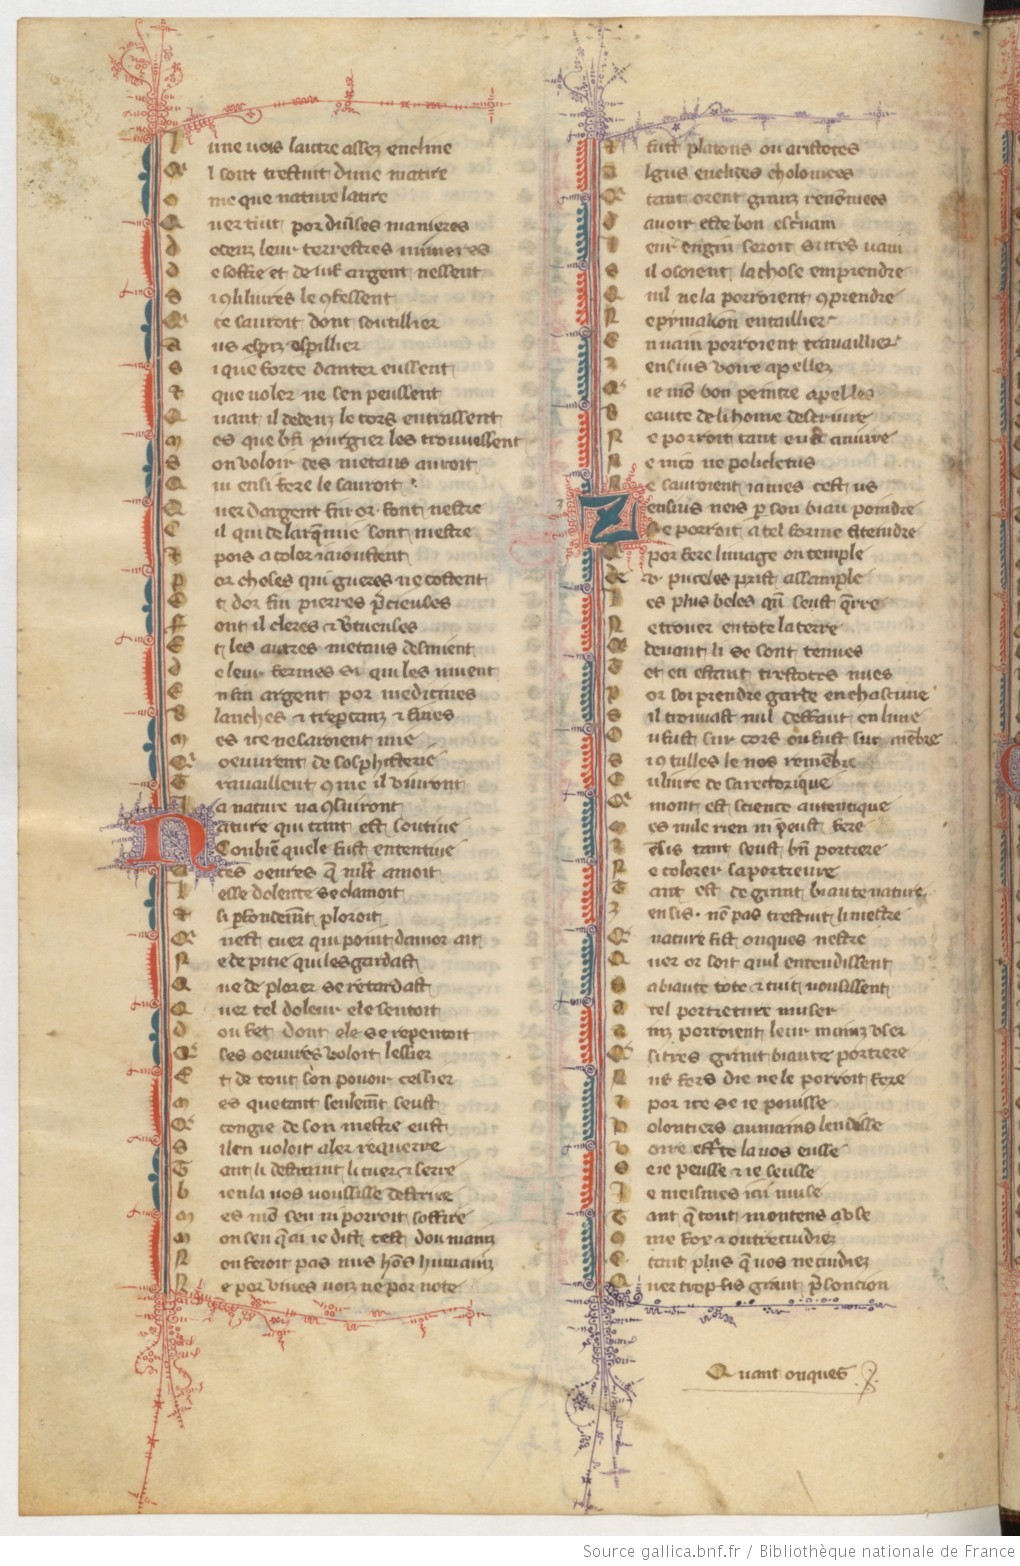 l une vers lautre assez encline
Q l sont trestuit dune matire
c me que nature latire
Q uer tuit por diuerses manieres
d edenz leur terrestres minieres
d e soffre et de vif argent nessent
S
Q ce sauroit dont soutillier
a us esperiz espillier
S i que force dantrer eussent
t que voler ne sen peussent
Q uant il dedenz le cors entrassent
m es que bñ purgiez les trouuessent
S on voloir des metaus auroit
Q ui ensi fere le sauroit
Q uer dargent fin or font nestre
C il qui delarqmie sont mestre
t pois a color i aioustent
p or choses qui gueres ne costent
E t dor fin pierres pcieuses
F ont il cleres & vtueuses
E t les autres metaus desnuent
d e leur formes si qui les muent
E n fin argent por medicines
B lanches & trespcanz & fines
m es ice ne saroient mie
Q oeuurent de sosphisterie
T rauaillent 9me il viuront
l a nature na9siuront
Nature qui tant est soutiue
Combien quele fust ententiue
C es oeures q mlt amoit
l esse dolente se clamoit
t si pfondemt ploroit
Q nest cuer qui point damor ait
N e de pitie qui lesgardast
Q ue de plorer se retardast
Q uer tel doleur ele sentoit
d ou fet dont ele se repentoit
Q ses oeuures voloit lessier
E t de tout son pouoir cessier
m es que tant seulemt seust
Q congie de son mestre eust
S i len voloit aler requerre
T ant li destraint li cuer & serre
b ien la vos voussisse descrire
m es mõ sen ni porroit soffire
m on sen qai ie dist cest dou mainz
N on feroit pas nus hõs humainz
N e por viues voiz ne por note
t fust platons ou aristotes
a lgus euclides tholomees
Q tant orent granz renõmees
d auoir este bon escriuain
l eur engin seroit si tres vain
S il osoient la chose emprendre
Q uil ne la porroient 9prendre
N e pymalion entaillier
E n uain porroient trauaillier
z ensius voire apellez
Q ie mõ bon peintre apelles
B eaute deli home descriure
N e porroit tant eust a viure
N e mico ne policletus
N e sauroient iames cest us
Zensius neis p son biau poindre
Ne porroit a tel forme ateindre
Q por fere limage ou temple
De v puceles prist essample
l es plus beles qn seust qrre
N e trouer en tote la terre
Q deuant li se sont tenues
T et en estant trestotes nues
p or soi prendre garde en chascune
S il trouast nul deffaut en lune
O u fust sur cors ou fust sur mẽbre
S
C u liure de sa rectorique
Q mont est science autentique
m es mile rien ni peust fere
z ensis tant seust bñ portrere
N e colorer sa portreure
T ant est de grant biaute nature
z ensis . nõ pas trestuit li mestre
Q nature fist onques nestre
Q uer or soit quil entendissent
s a biaute tote & tuit vousissent
a tel portreture muser
a inz porroient leur mainz vser
Q si tres grant biaute portrere
N us fors die ne le porroit fere
por ice se ie poisse
v olontiers aumains lendisse
v oire escrite la vos eusse
S e ie peusse & ie seusse
J e meismes i ai muse
T ant q tout mon sens a vse
c me fox & outrecuidiez
c tant plus q vos ne cuidiez
Q uer trop fis grant psoncion
Quant onques
Source gallica.bnf.fr / Bibliothèque nationale de France